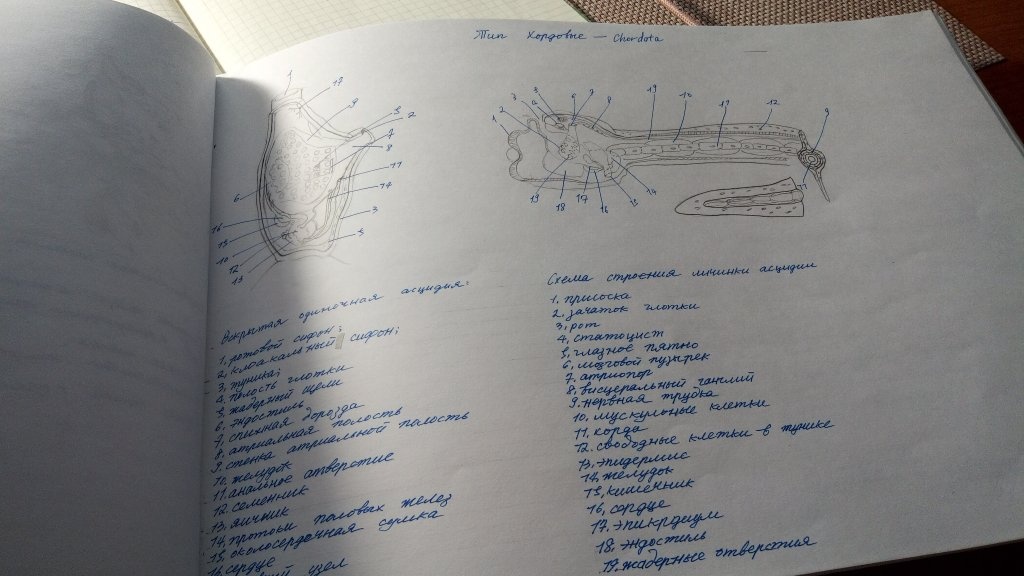 Тип Хордовые — Chordata
1
17
9
5
2
7
8
11
14
3
5
6
16
15
10
12
13
3
3
4
6
7
8
2
1
19
10
11
12
9
13
18
17
16
15
14
Вскрытая одиночная асцидия:
1, ротовой сифон;
2, клоакальный сифон;
3, туника;
4, полость глотки
5, жаберный щели
6, эндостиль
7, спинная борозда
8, атриальная полость
9, стенка атриальной полость
10, желудок
11, анальное отверстие
12, семенник
13, яичник
14, протоки половых желез
15, околосердочная сумка
16, сердце
узел
Схема строения личинки асцидии
1, присоска
2, зачаток глотки
3, рот
4, статоцист
5, глазное пятно
6, мозговой пузырек
7, атриопор
8, висцеральный ганглий
9, нервная трубка
10, мускульные клетки
11, корда
12. свободные клетки в тунике
13, эпидермис
14, желудок
15, кишечник
16, сердце
17, эпикрдиум
18, эндостиль
19, жаберные отверстия